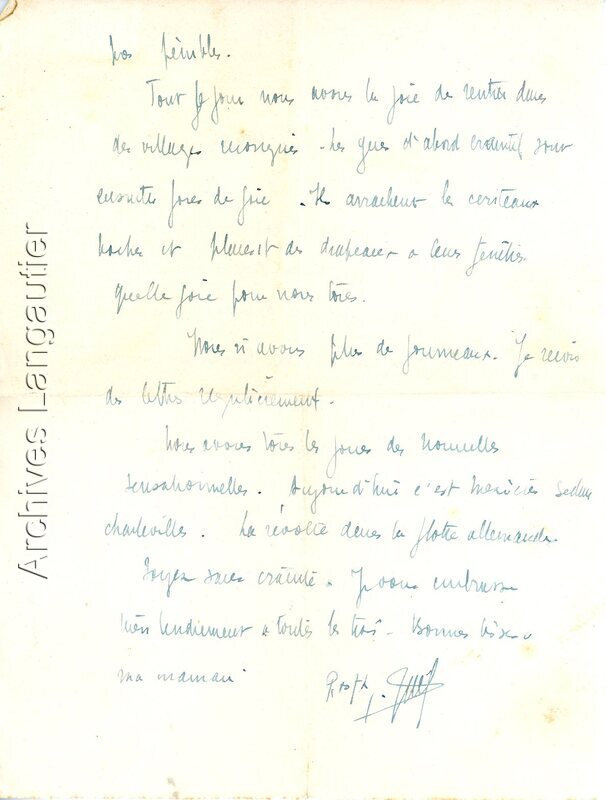 pas pénibles.
Tout le jour nous avons la joie de rentrer dans
des villages conquis. Les gens d'abord craintif sont
ensuites fous de joie. Ils arrachent les
boches et placent des drapeaux a leurs fenêtres.
quelle joie pour nous tous.
Nous n'avons plus de journeaux. Je reçois
des lettres régulièrement.
Nous avons tous les jours des nouvelles
sensationnelles. Aujourd'hui c'est Mézières Sedan
charleville. La révolte dans la flotte allemande.
Soyez sans crainte. Je vous embrasse
bien tendrement a toutes les trois. Bonnes bises a
ma maman
Archives Langautier